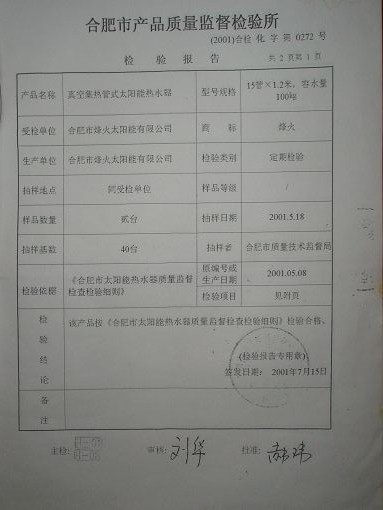 合肥市产品质量监督检验所
(2001)合检 化 字 第 0272 号
检 验 报 告
共 2 页第 1 页
产品名称 真空集热管式太阳能热水器 型号规格 15管×1.2米，容水量
100kg
受检单位 合肥市烽火太阳能有限公司 商 标 烽火
生产单位 合肥市烽火太阳能有限公司 检验类别 定期检验
抽样地点 同受检单位 样品等级 /
样品数量 贰台 抽样日期 2001.5.18
抽样基数 40台 抽样者 合肥市质量技术监督局
检验依据 《合肥市太阳能热水器质量监督
检查检验细则》
原编号或
生产日期 2001.05.08
检验项目 见附页
检验结论 该产品按《合肥市太阳能热水器质量监督检查检验细则》检验合格。
(检验报告专用章)
签发日期： 2001年7月15日
备注
主检: 审核: 刘华 批准: